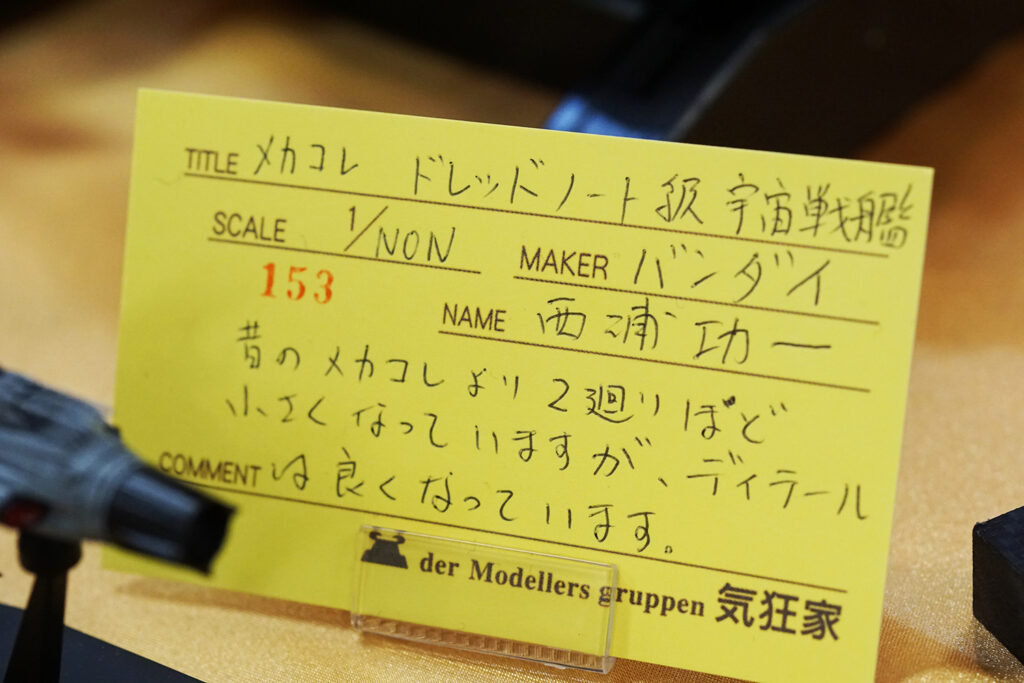 TITLE メカコレ ドレッドノート級 宇宙戦艦
SCALE 1/NON
MAKER バンダイ
153
NAME 西浦功一
昔のメカコレより2廻りほど
小さくなっていますが、ディテール
COMMENT は良くなっています。
der Modellers gruppen 気狂家